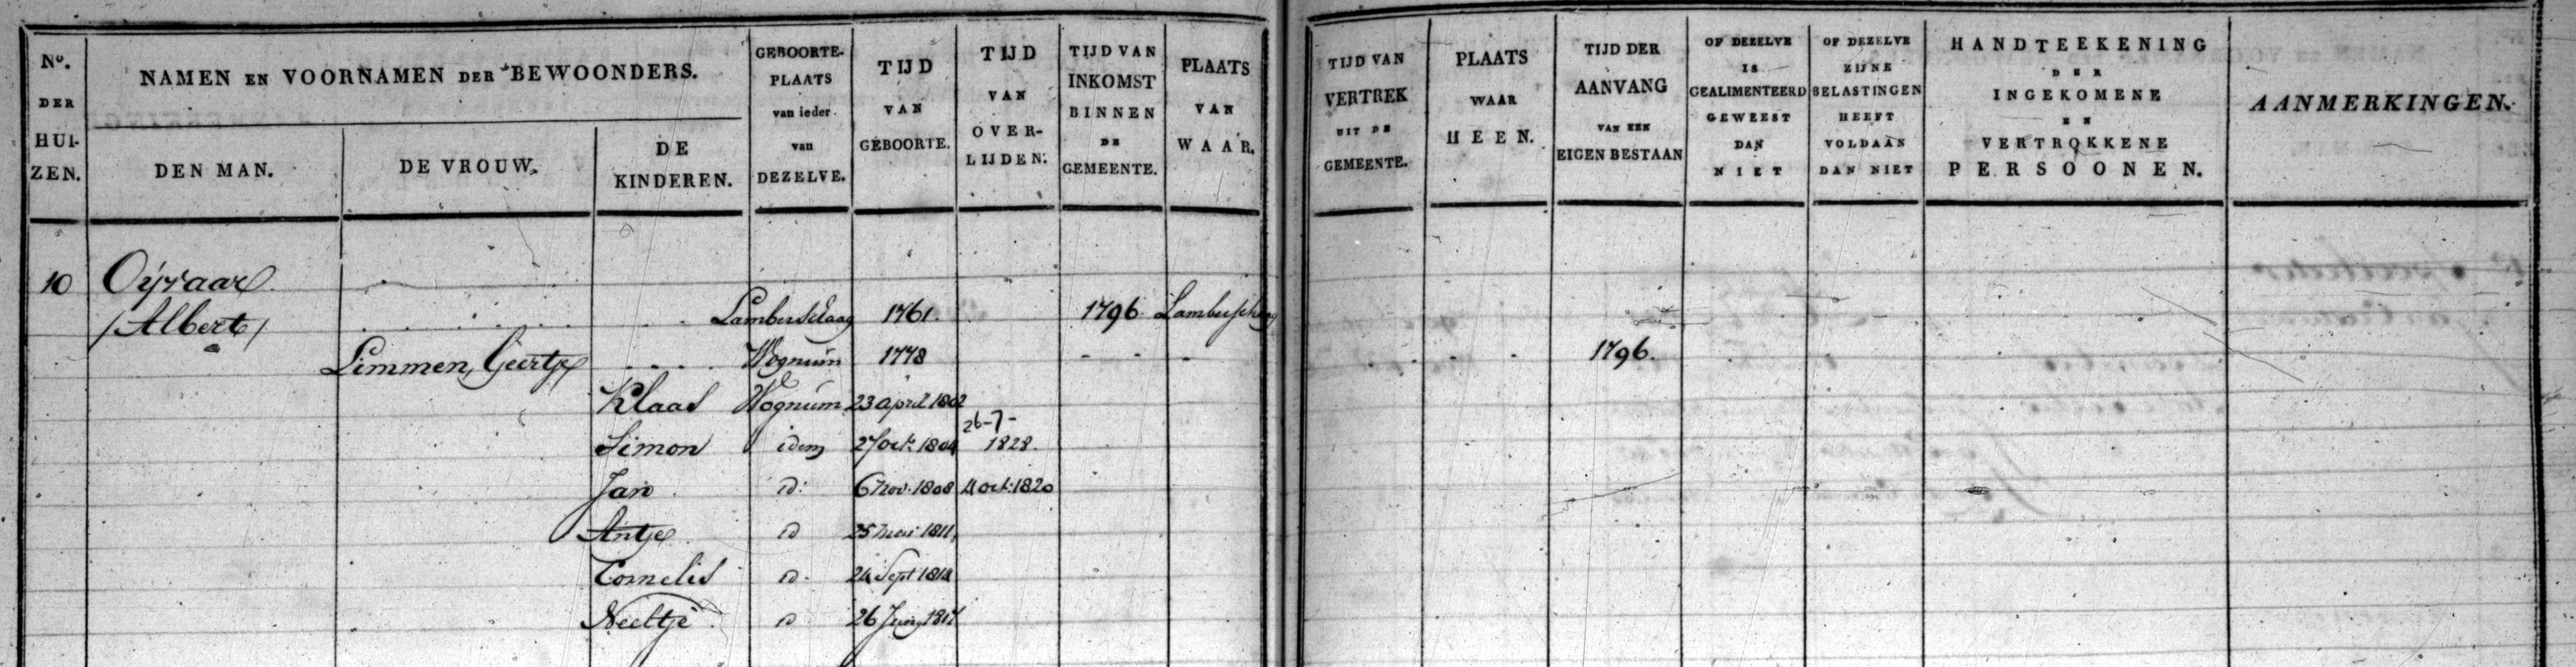 No. DER HUIZEN.
NAMEN EN VOORNAMEN DER BEWOONDERS.
DEN MAN.
DE VROUW.
DE KINDEREN.
GEBOORTE-PLAATS van ieder van DEZELVE.
TIJD VAN GEBOORTE.
TIJD VAN OVER-LIJDEN.
TIJD VAN INKOMST BINNEN DE GEMEENTE.
PLAATS VAN WAAR.
TIJD VAN VERTREK UIT DE GEMEENTE.
PLAATS WAAR HEEN.
TIJD DER AANVANG VAN EEN EIGEN BESTAAN
OF DEZELVE IS GEALIMENTEERD GEWEEST DAN NIET
OF DEZELVE ZIJNE BELASTINGEN HEEFT VOLDAAN DAN NIET
HANDTEEKENING DER INGEKOMENE EN VERTROKKENE PERSOONEN.
AANMERKINGEN.
10
/Albert/ 1761. 1796.
Limmen, Geertje Wognum 1778 1796.
Klaas Wognum 23 april 1802
Simon idem 27 oct: 1804 26-7- 1828.
Jan id: 6 nov: 1808 4 oct: 1820
Antje id 25 1811
Cornelis id. 24 Sept 1814
Neeltje id 26 Junij 1817